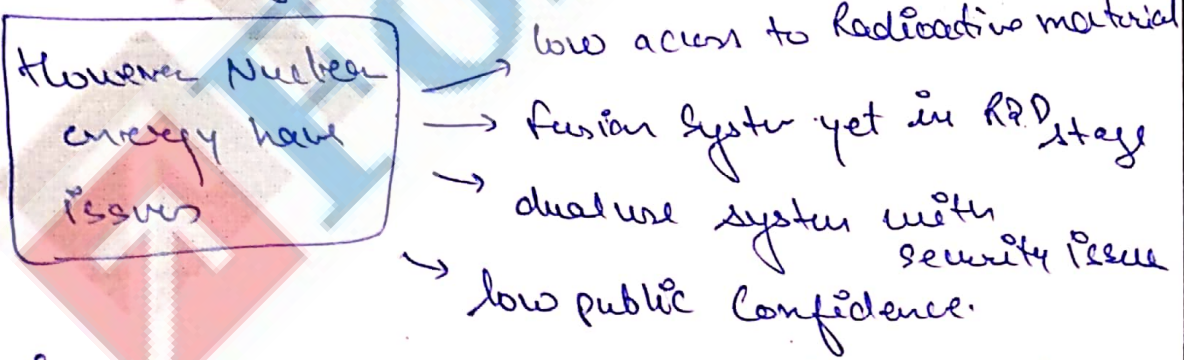 However Nuclear
energy have
issues
→ low access to Radioactive material
→ fusion System yet in R&D stage
→ dual use system with
security issue
→ low public Confidence.